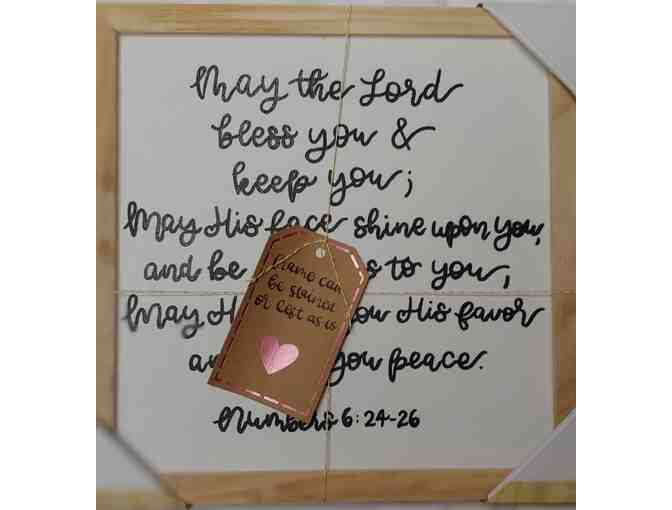 May the Lord
bless you &
keep you;
May His face shine upon you,
and be s to you,
May H you His favor
an you peace.
Numbers 6:24-26
Frame can
be stained
or left as is